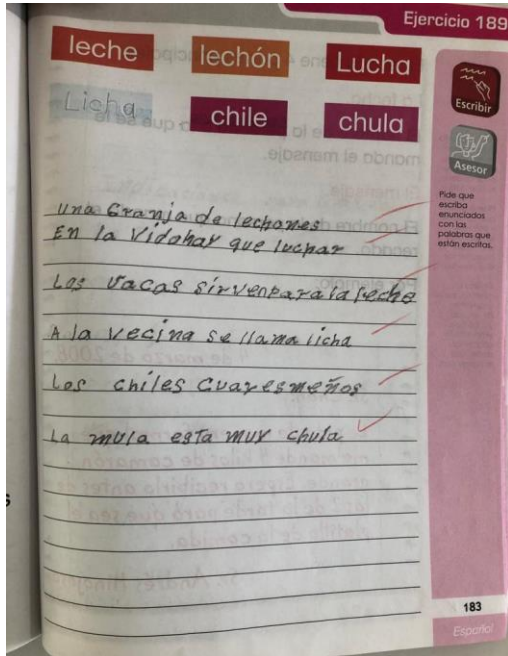 Ejercicio 189
leche lechón Lucha
Licha chile chula
Escribir
Asesor
Pide que
escriba
enunciados
con las
palabras que
están escritas.
Una Granja de lechones
En la Vidahay que luchar
Las Vacas sirvenparala leche
A la Vecina se llama licha
Los chiles Cuaresmeños
La mula esta muy chula
183
Español